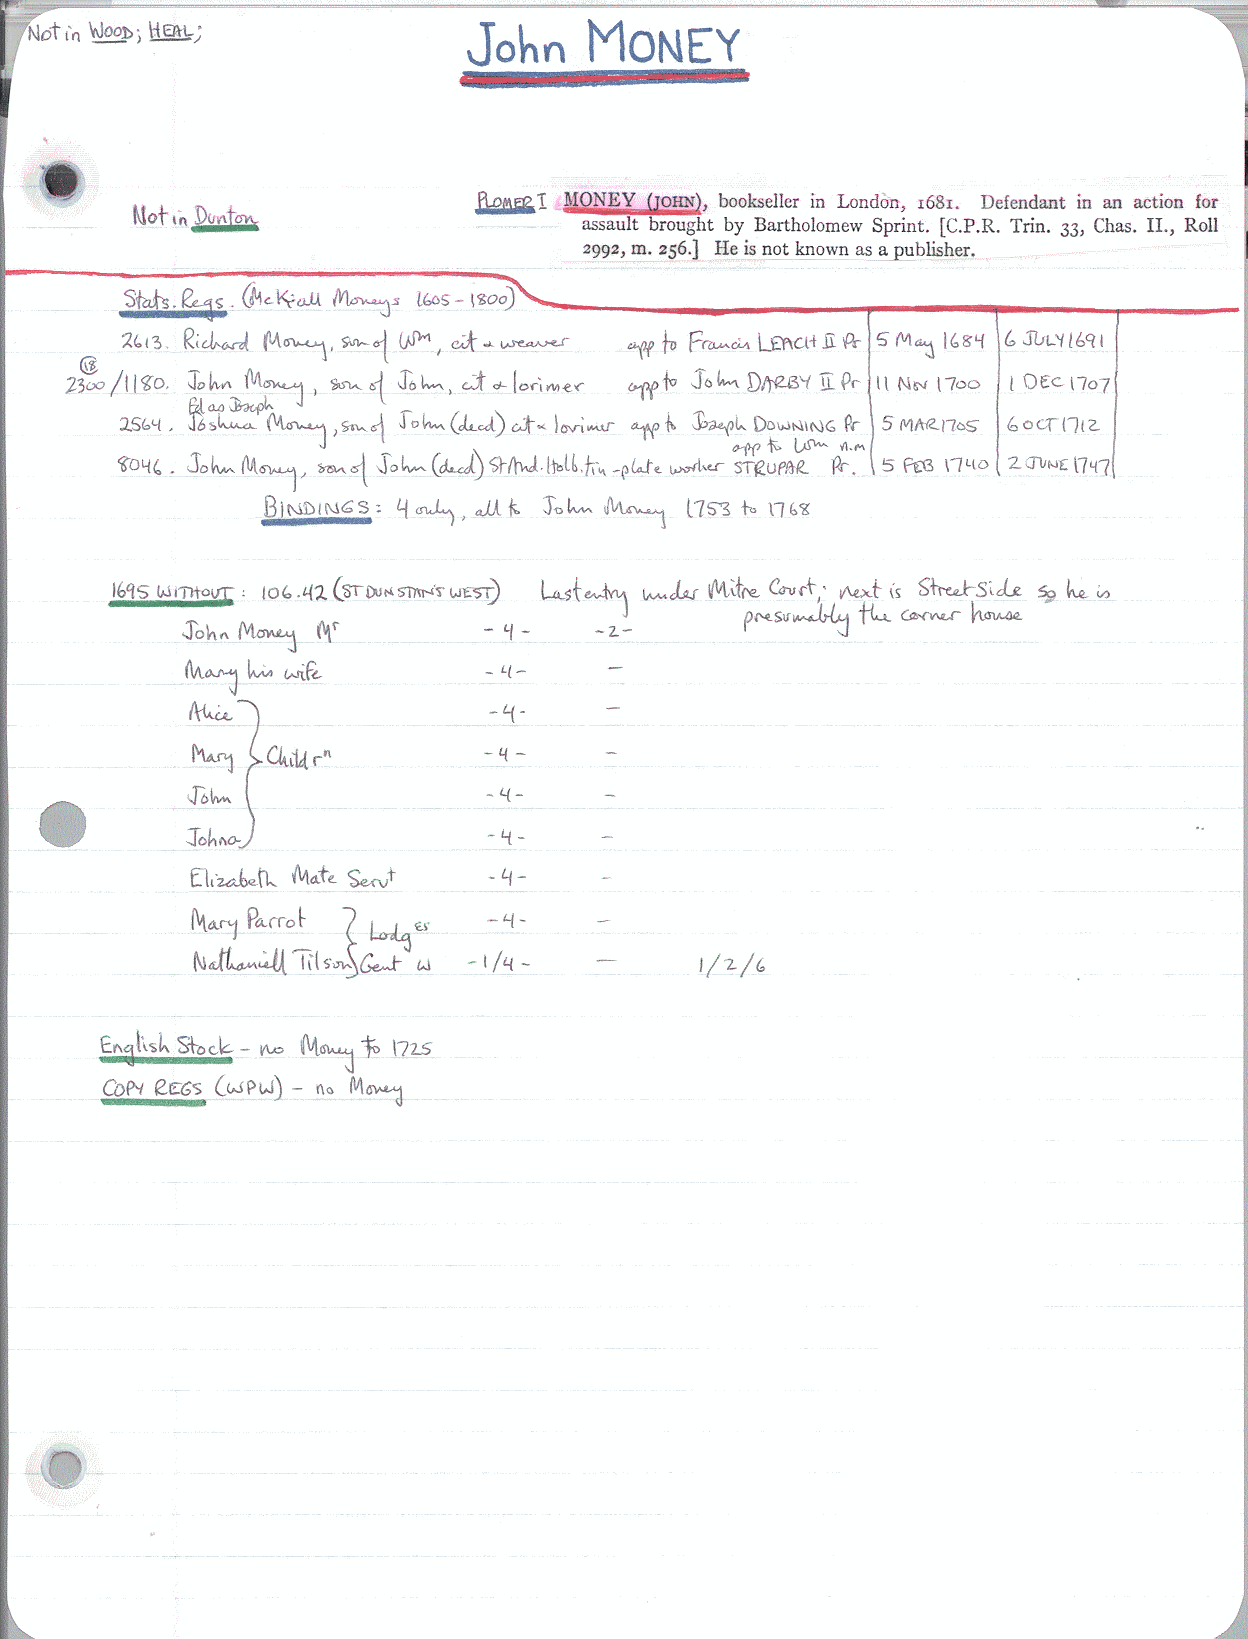 Not in WOOD; HEAL;
John MONEY
Not in Dunton
PLOMER I MONEY (JOHN), bookseller in London, 1681. Defendant in an action for
assault brought by Bartholomew Sprint. [C.P.R. Trin. 33, Chas. II., Roll
2992, m. 256.] He is not known as a publisher.
Stats. Regs. (McK: all Moneys 1605-1800)
2613. Richard Money, son of Wm, cit & weaver app to Francis LEACH II Pr 5 May 1684 6 JULY 1691
18
2300/1180. John Money, son of John, cit & lorimer app to John DARBY II Pr 11 Nov 1700 1 DEC 1707
Fd as Joseph
2564. Joshua Money, son of John (decd) cit & lorimer app to Joseph DOWNING Pr 5 MAR 1705 6 OCT 1712
app to Wm n.m
8046. John Money, son of John (decd) St And. Holb. tin-plate worker STRUPAR Pr. 5 FEB 1740 2 JUNE 1747
BINDINGS: 4 only, all to John Money 1753 to 1768
1695 WITHOUT: 106.42 (ST DUNSTAN'S WEST) Last entry under Mitre Court; next is Street Side so he is
presumably the corner house
John Money Mr -4- -2-
Mary his wife -4- -
Alice -4- -
Mary Childrn -4- -
John -4- -
Johna -4- -
Elizabeth Mate Servt -4- -
Mary Parrot -4- -
Lodgers
Nathaniell Tilson Gent w -1/4- - 1/2/6
English Stock - no Money to 1725
COPY REGS (WPW) - no Money